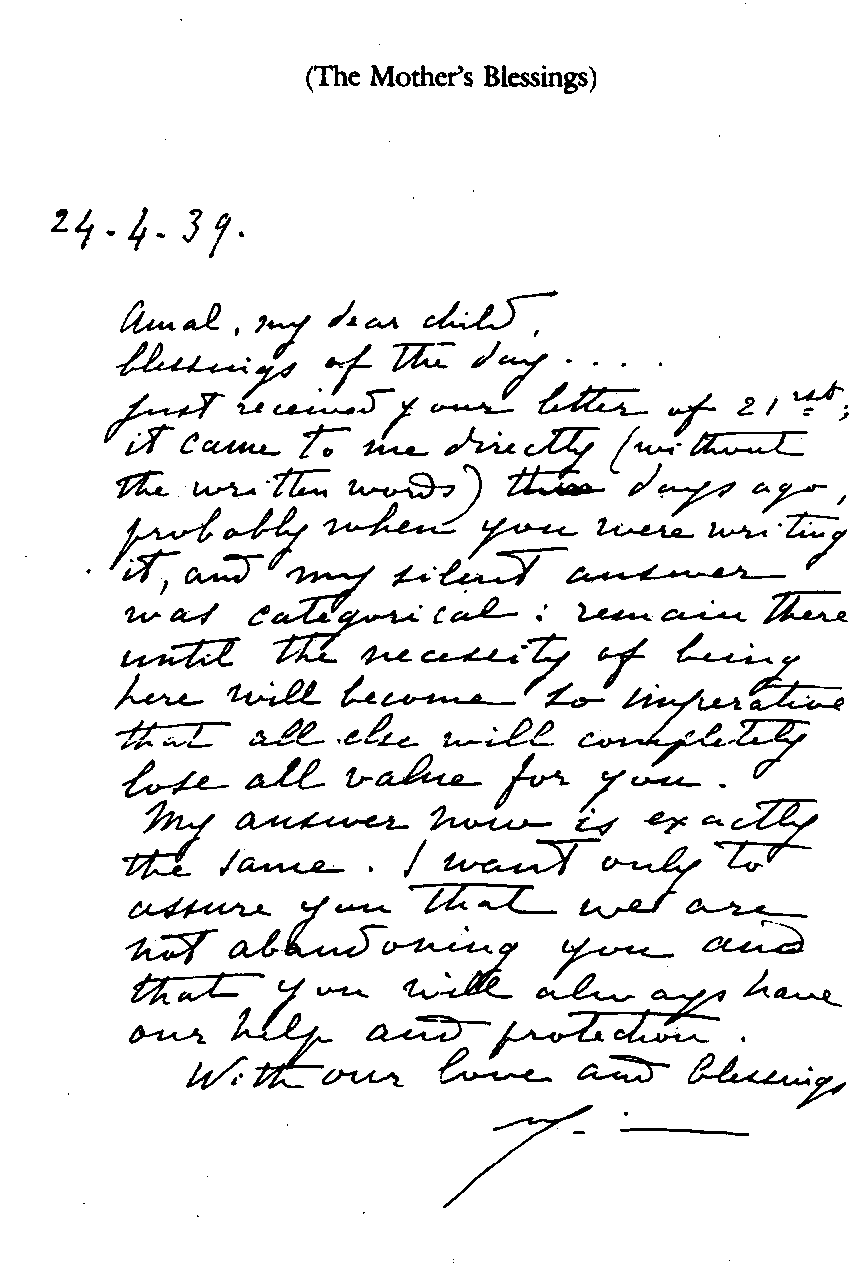 (The Mother's Blessings)
24-4-39.
Amal, my dear child,
blessings of the day....
Just received your letter of 21rst;
it came to me directly (without
the written words) three days ago,
probably when you were writing
it, and my silent answer
was categorical: remain there
until the necessity of being
here will become so imperative
that all else will completely
lose all value for you.
My answer now is exactly
the same. I want only to
assure you that we are
not abandoning you and
that you will always have
our help and protection.
With our love and blessings